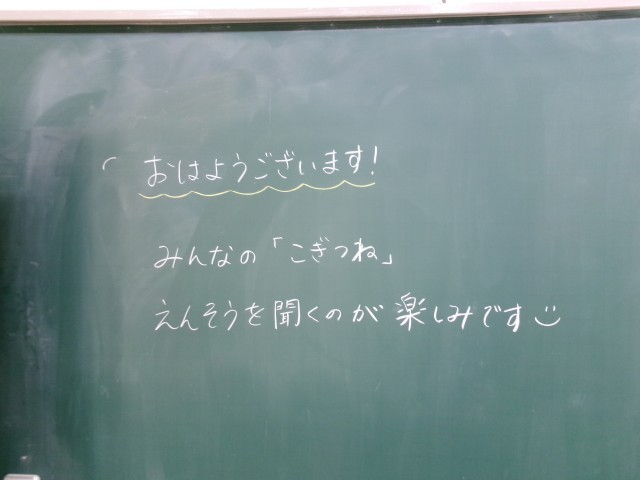 おはようございます!
みんなの「こぎつね」
えんそうを聞くのが楽しみです